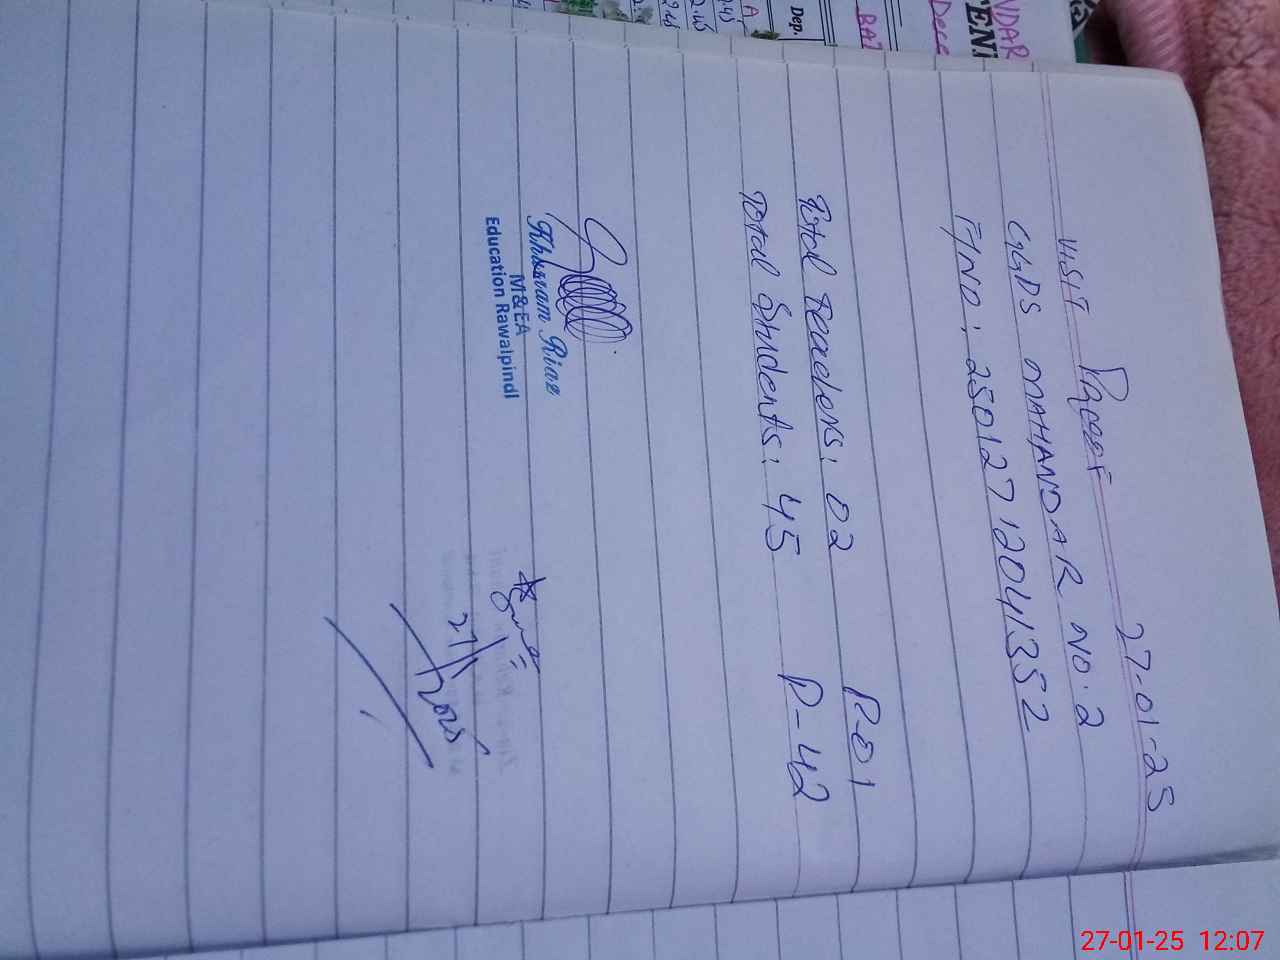 27-01-25
VISIT Proof
GGPS MAHANDAR NO.2
F/NO: 25012712041352
Total Teachers: 02 P-01
Total Students: 45 P-42
Khurram Riaz
M&EA
Education Rawalpindi
27/1/2025
NDAR
TEN
Dece
BAZ
Dep.
A
27-01-25 12:07